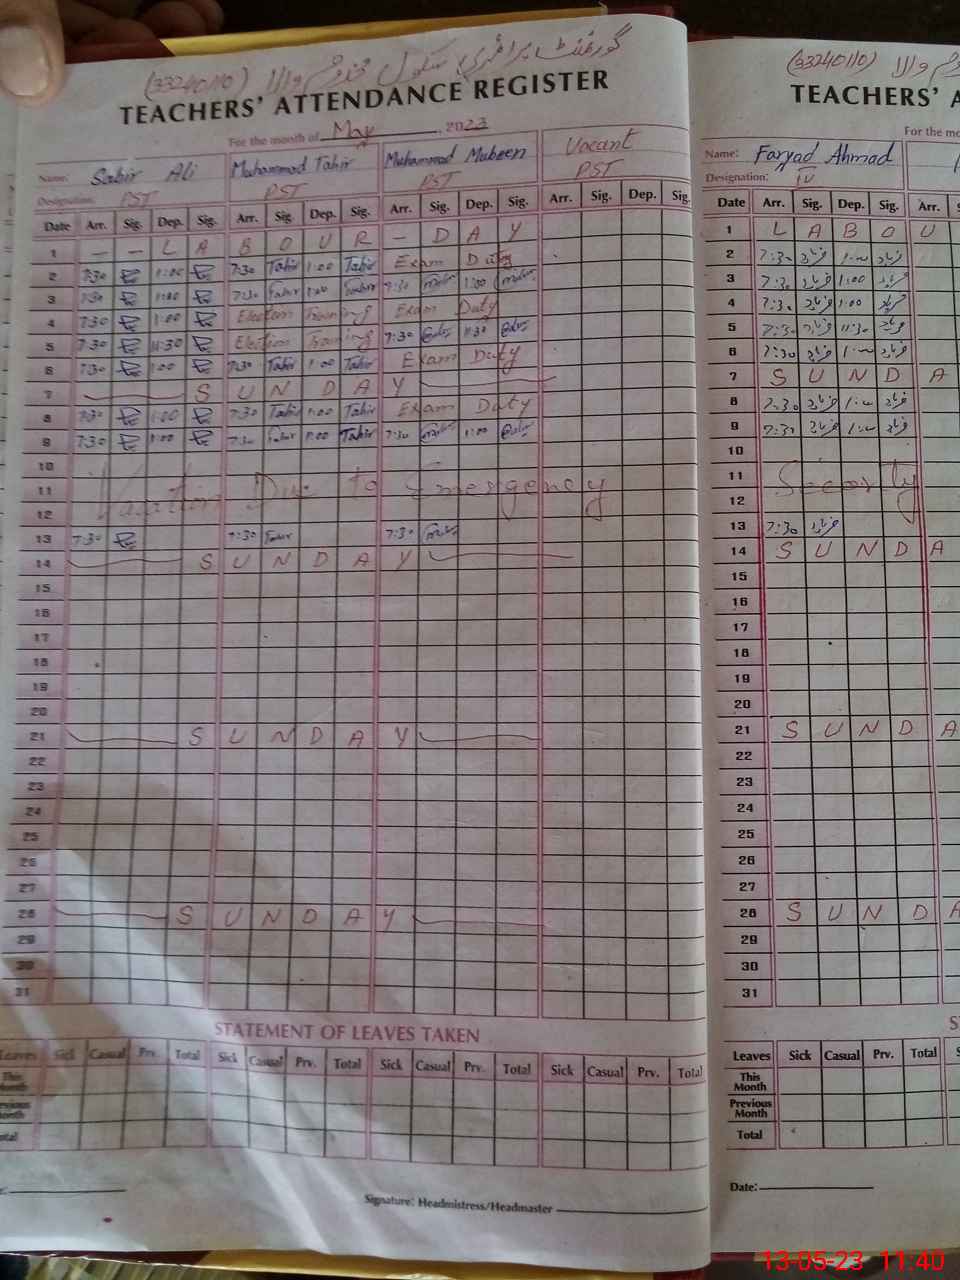 گورنمنٹ پرائمری سکول مخدوم والا (33240110)
TEACHERS' ATTENDANCE REGISTER
For the month of May 2023
Name: Sabir Ali Muhammad Tahir Muhammad Mubeen Vacant
Designation: PST PST PST PST
Date Arr. Sig. Dep. Sig. Arr. Sig. Dep. Sig. Arr. Sig. Dep. Sig. Arr. Sig. Dep. Sig.
1 — — L A B O U R — D A Y
2 7:30 1:00 7:30 Tahir 1:00 Tahir Exam Duty
3 7:30 1:00 7:30 Tahir 1:00 Tahir 7:30 1:00
4 7:30 1:00 Election Training Exam Duty
5 7:30 11:30 Election Training 7:30 11:30
6 7:30 1:00 7:30 Tahir 1:00 Tahir Exam Duty
7 S U N D A Y
8 7:30 1:00 7:30 Tahir 1:00 Tahir Exam Duty
9 7:30 1:00 7:30 Tahir 1:00 Tahir 7:30 1:00
10
11 Vacation Due to Emergency
12
13 7:30 7:30 Tahir 7:30
14 S U N D A Y
15
16
17
18
19
20
21 S U N D A Y
22
23
24
25
26
27
28 S U N D A Y
29
30
31
STATEMENT OF LEAVES TAKEN
Leaves Sick Casual Prv. Total Sick Casual Prv. Total Sick Casual Prv. Total Sick Casual Prv. Total
This Month
Previous Month
Total
Signature: Headmistress/Headmaster
والا (33240110)
TEACHERS' A
For the mo
Name: Faryad Ahmad
Designation: IV
Date Arr. Sig. Dep. Sig. Arr. S
1 L A B O U
2 7:30 فریاد 1:00 فریاد
3 7:30 فریاد 1:00 فریاد
4 7:30 فریاد 1:00 فریاد
5 7:30 فریاد 11:30 فریاد
6 7:30 فریاد 1:00 فریاد
7 S U N D A
8 7:30 فریاد 1:00 فریاد
9 7:30 فریاد 1:00 فریاد
10
11 Security
12
13 7:30 فریاد
14 S U N D A
15
16
17
18
19
20
21 S U N D A
22
23
24
25
26
27
28 S U N D A
29
30
31
S
Leaves Sick Casual Prv. Total S
This Month
Previous Month
Total
Date:
13-05-23 11:40